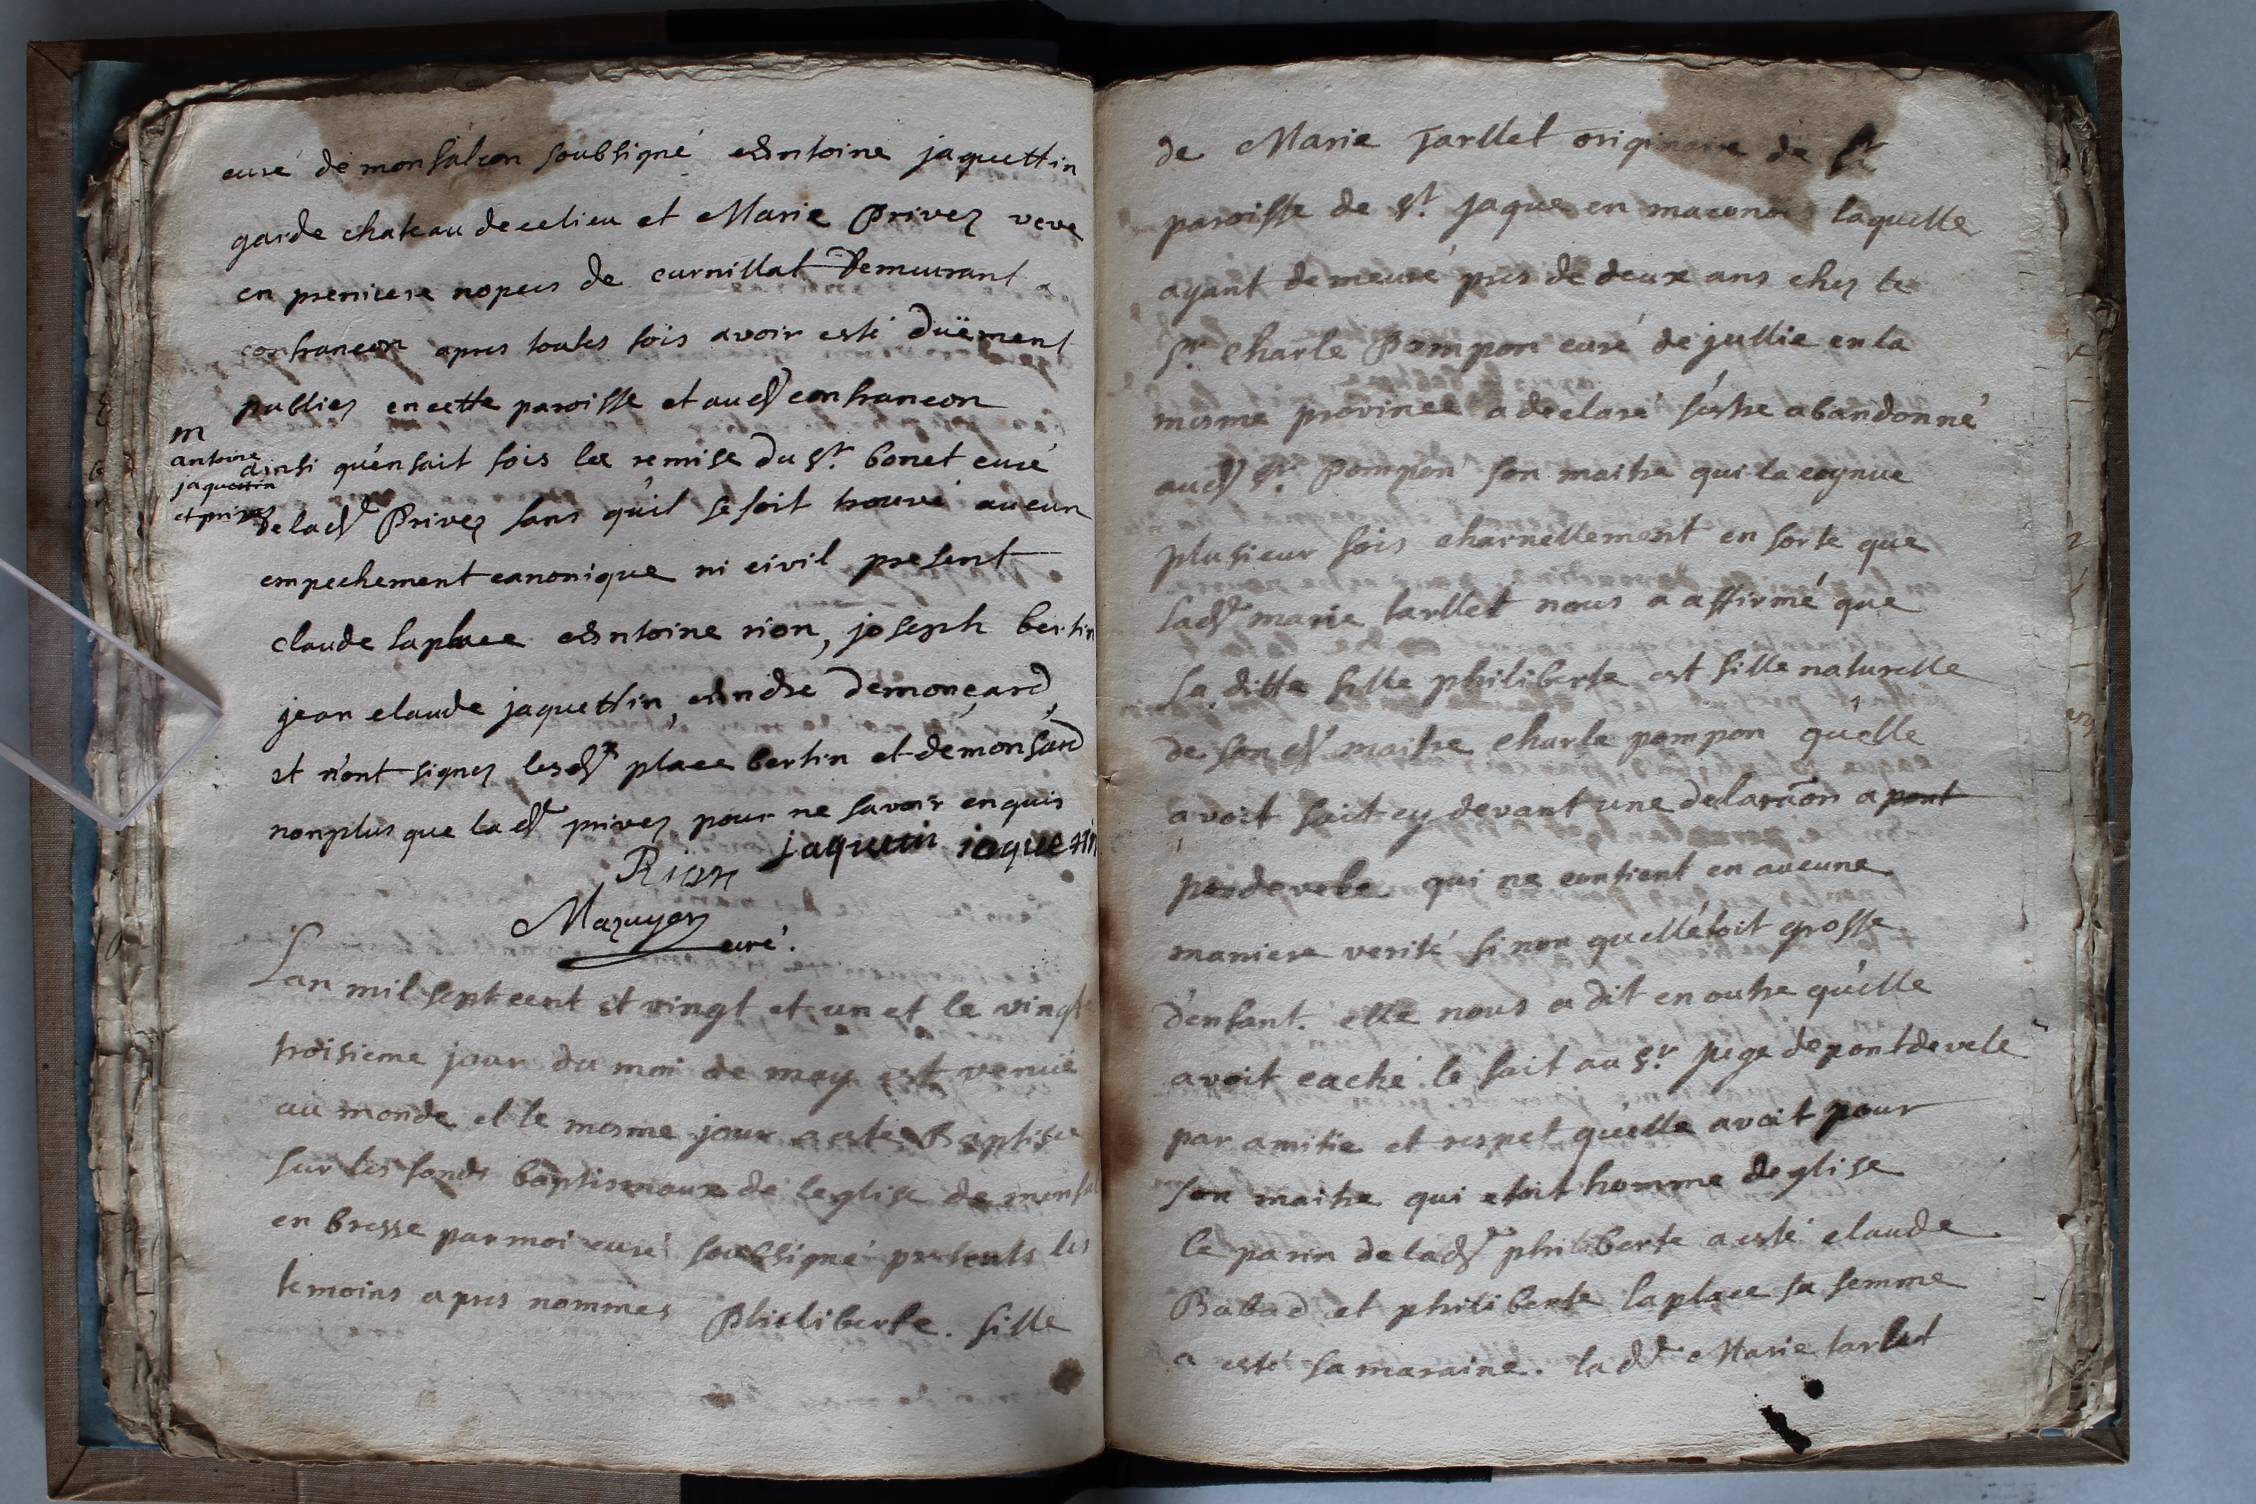 curé de monfalcon soubsigné Antoine jaquettin
garde chateau de ce lieu et Marie Privez veve
en premiere nopces de curnillat Demeurant a
confrancon apres toutes fois avoir esté duëment
publiez en cette paroisse et aud confrancon
m
antoine
jaquettin
et privez
ainsi qu'en fait fois la remise du sr. bonet curé
de lade Privez sans qu'il se soit trouvé aucun
empechement canonique ni civil present
claude laplace Antoine rion, joseph bertin
jean claude jaquettin, Andre demoncard,
et n'ont signez lesds place bertin et demonsard
nonplus que la de privez pour ne savoir enquis
Rion jaquetin jaquettin
Mazuyer
curé.
Lan mil sept cent et vingt et un et le vingt
troisieme jour du moi de may est venuë
au monde et le mesme jour a esté Baptisée
sur les fonds baptismaux de leglise de monfal
en bresse par moi curé soubsigné presents les
temoins apres nommes Philiberte. fille
de Marie Tarllet originaire de
paroisse de st. jaque en maconois laquelle
ayant demeuré pres de deux ans chez le
sr. Charle Pompon curé de jullie en la
mesme province a declaré s'estre abandonné
aud sr. Pompon son maitre qui la cognue
plusieur fois charnellement en sorte que
lade marie tarllet nous a affirmé que
la ditte fille philiberte est fille naturelle
de son d maitre Charle pompon quelle
avoit fait cy devant une delaraon a pont
pondevele qui ne contient en aucune
maniere verité sinon quelle étoit grosse
d'enfant. elle nous a dit en outre qu'elle
avoit caché le fait au sr. juge de pontdevele
par amitie et respet qu'elle avoit pour
son maitre qui etoit homme deglise
le parin de lade philiberte a esté claude
Babad et philiberte laplace sa femme
a esté sa maraine. la de Marie tarlet